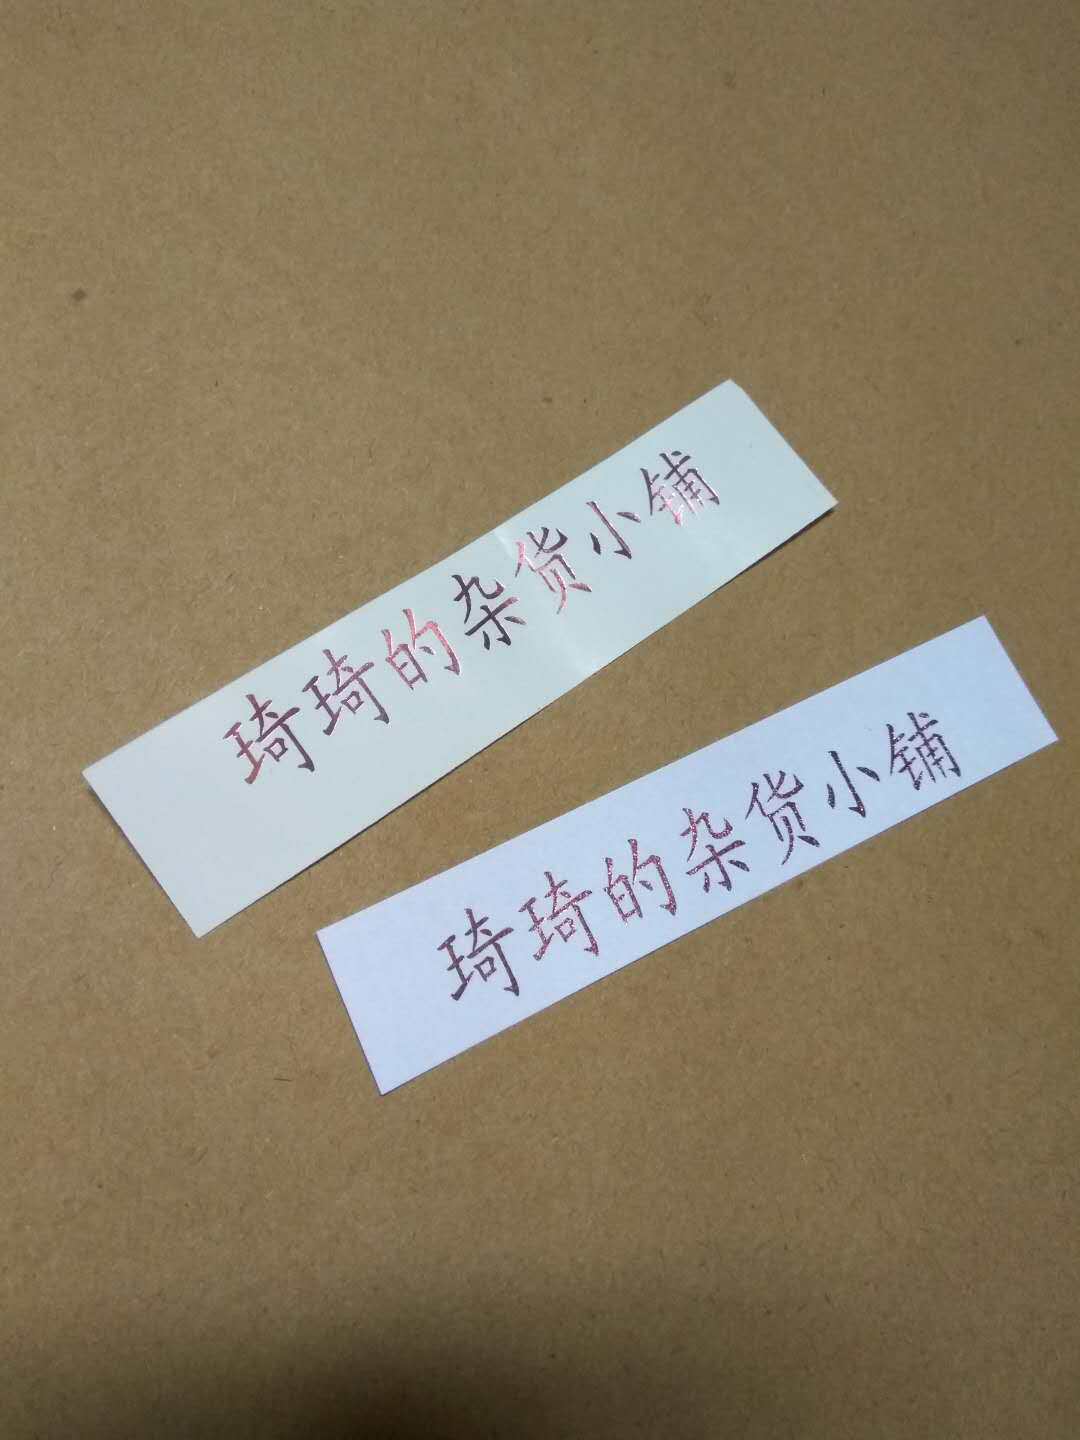 琦琦的杂货小铺
琦琦的杂货小铺